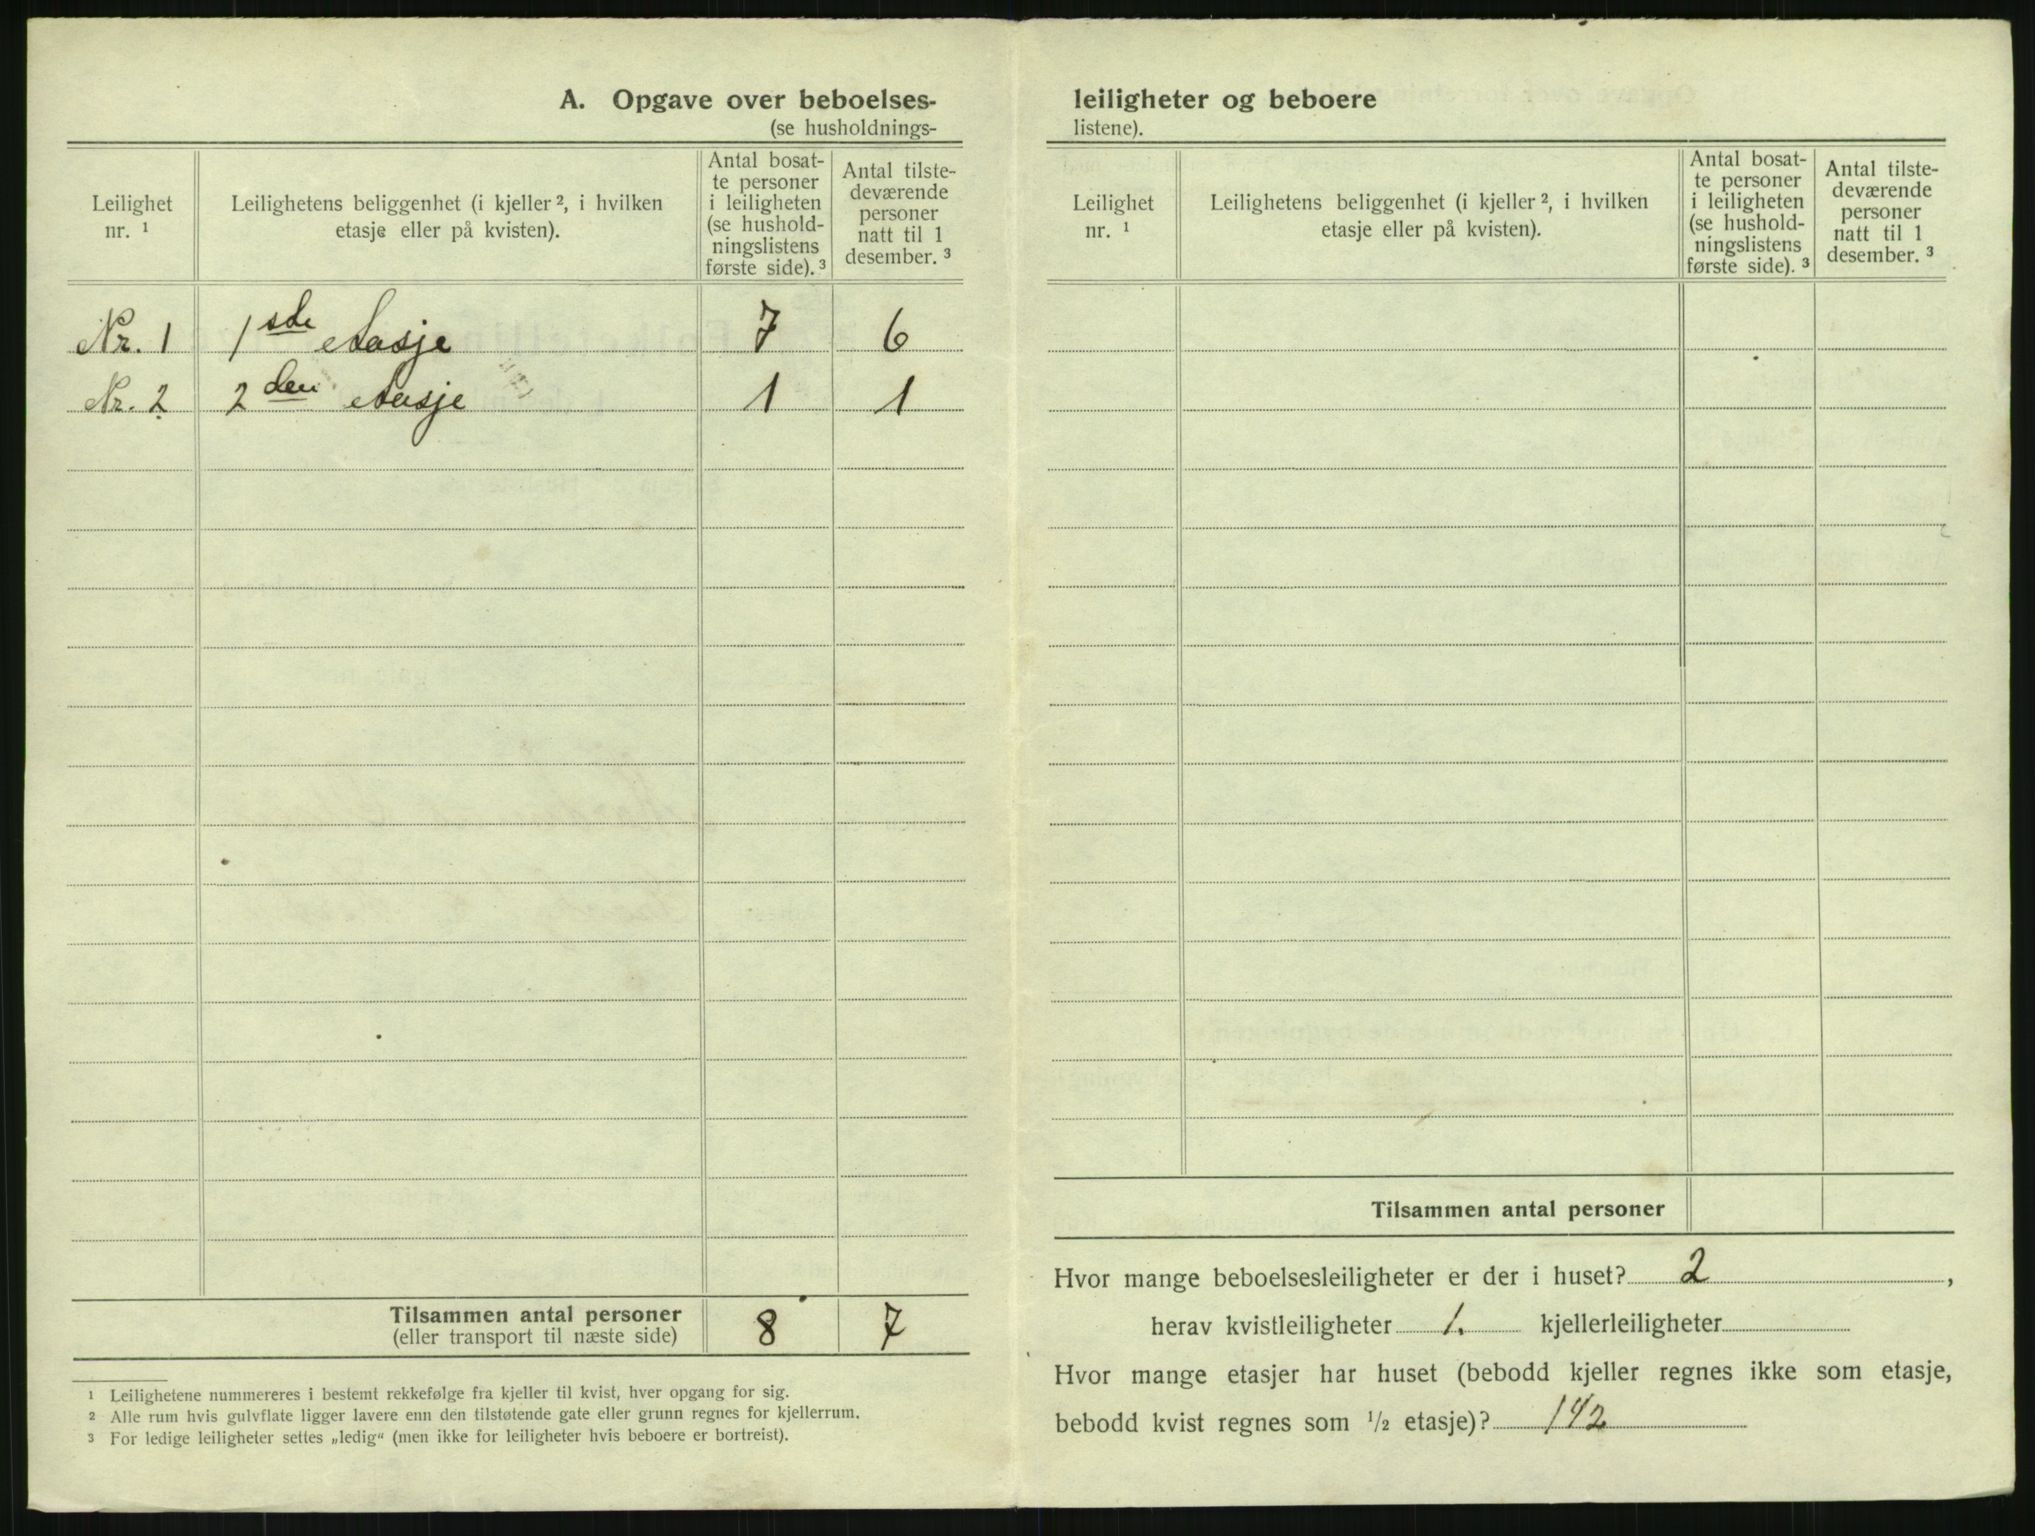 A. Opgave over beboelses-
(se husholdnings-
Leilighet nr. ¹
Leilighetens beliggenhet (i kjeller ², i hvilken etasje eller på kvisten).
Antal bosat-
te personer
i leiligheten
(se hushold-
ningslistens
første side). ³
Antal tilste-
deværende
personer
natt til 1
desember. ³
Nr. 1 1ste etasje 7 6
Nr. 2 2den etasje 1 1
Tilsammen antal personer 8 7
(eller transport til næste side)
¹ Leilighetene nummereres i bestemt rekkefølge fra kjeller til kvist, hver opgang for sig.
² Alle rum hvis gulvflate ligger lavere enn den tilstøtende gate eller grunn regnes for kjellerrum.
³ For ledige leiligheter settes „ledig“ (men ikke for leiligheter hvis beboere er bortreist).
leiligheter og beboere
listene).
Leilighet nr. ¹
Leilighetens beliggenhet (i kjeller ², i hvilken etasje eller på kvisten).
Antal bosat-
te personer
i leiligheten
(se hushold-
ningslistens
første side). ³
Antal tilste-
deværende
personer
natt til 1
desember. ³
Tilsammen antal personer
Hvor mange beboelsesleiligheter er der i huset? 2,
herav kvistleiligheter 1. kjellerleiligheter
Hvor mange etasjer har huset (bebodd kjeller regnes ikke som etasje,
bebodd kvist regnes som ½ etasje)? 1½